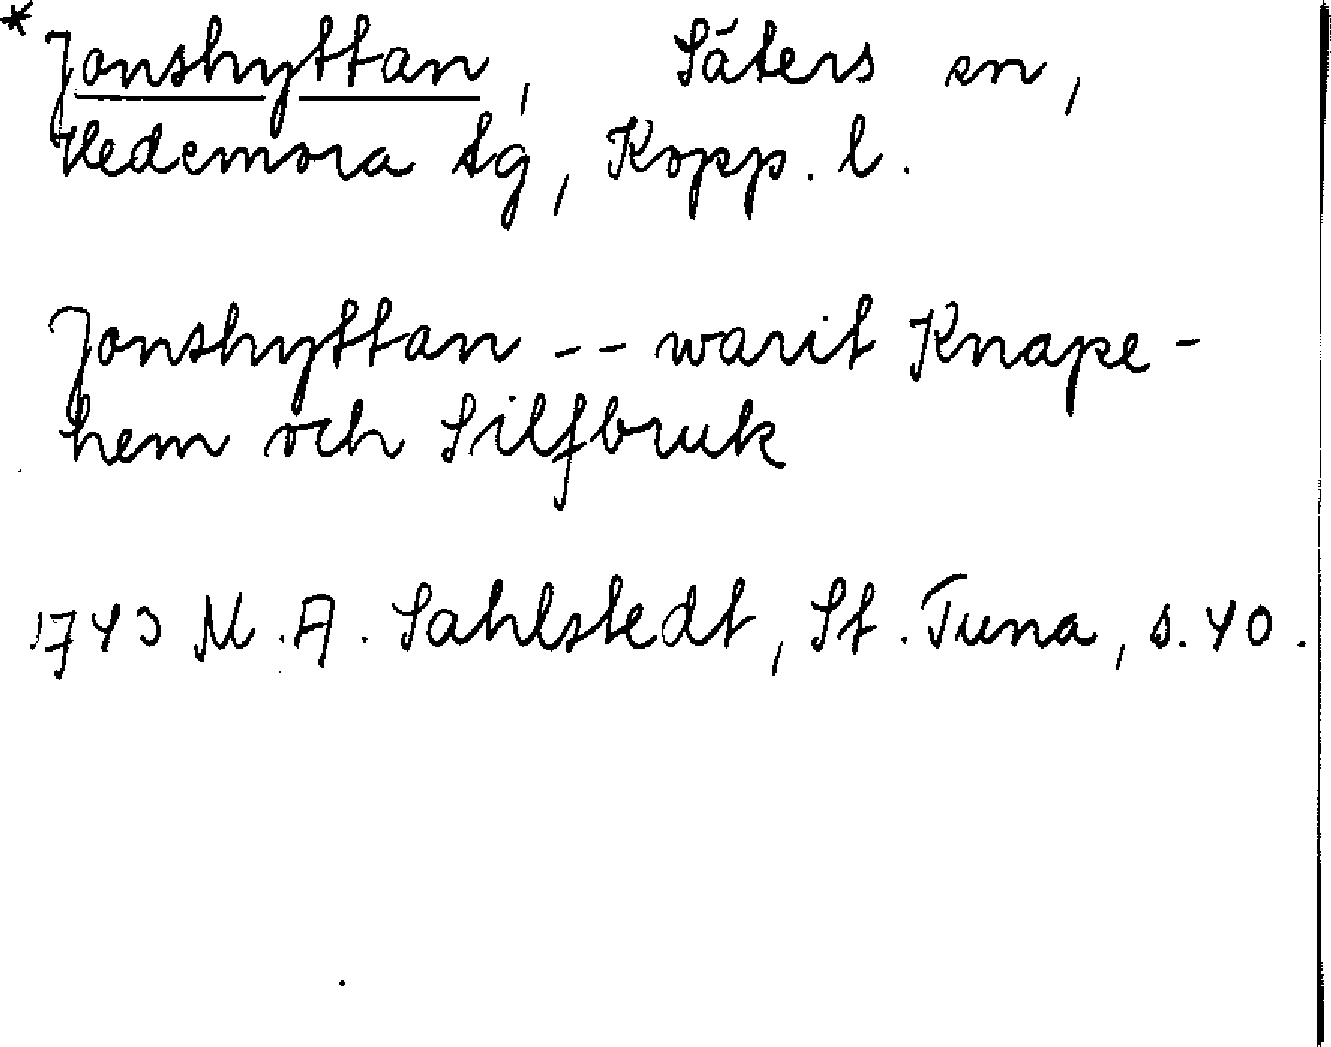 * Jonshyttan, Säters sn,
Hedemora tg, Kopp. l.
Jonshyttan -- warit Knape-
hem och Silfbruk
1743 M. A. Sahlstedt, St. Tuna, s. 40.